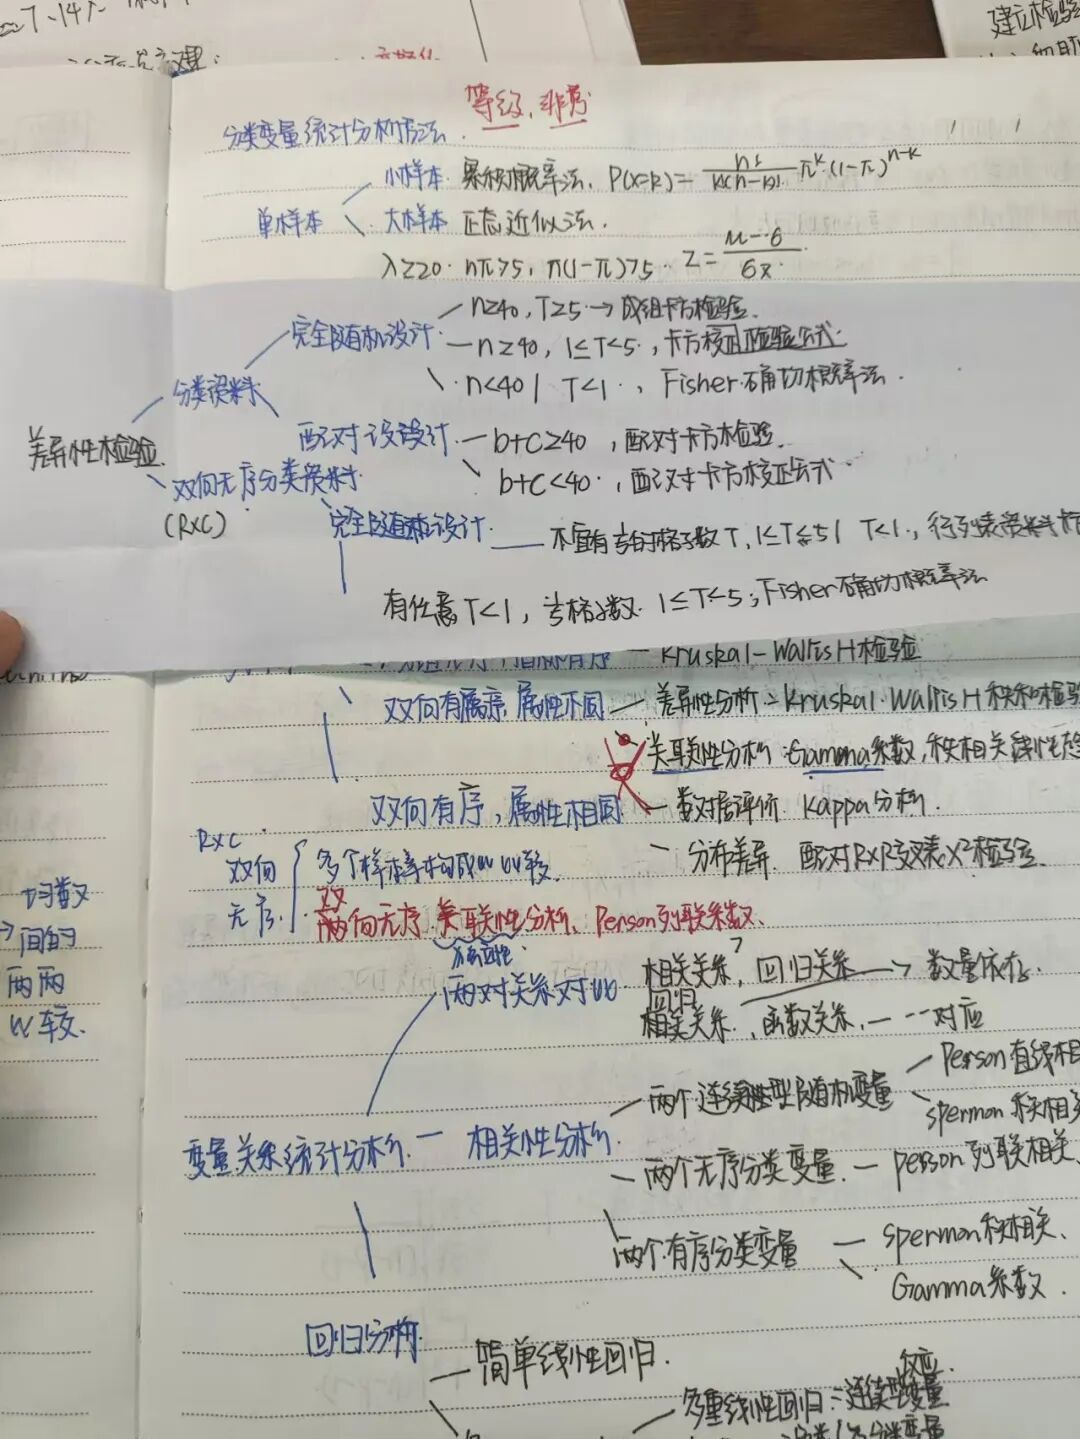 ≈7、14个
建立检验
等级、非参
分类变量统计分析方法.
小样本 累积概率法、P(X=k)= n!/k!(n-k)! π^k·(1-π)^n-k
单样本
大样本 正态近似法.
λ≥20· nπ>5, n(1-π)>5·
n≥40, T≥5·→成组卡方检验.
完全随机设计· n≥40, 1≤T<5·, 卡方校正检验公式
n<40 / T<1·, Fisher确切概率法.
分类资料
差异性检验.
配对设计 b+c≥40, 配对卡方检验.
b+c<40·, 配对卡方校正公式·
双向无序分类资料
(R×C)
完全随机设计· 不宜有 格子数 T, 1≤T≤5 / T<1·, 行列表资料卡
有任意T<1, 格子数· 1≤T≤5; Fisher确切概率法
Kruskal-Wallis H检验
双向有序, 属性不同 差异性分析: Kruskal·Wallis H秩和检验
关联性分析: Gamma系数, 秩相关 线性趋
双向有序, 属性相同 Kappa分析.
分布差异. 配对R×R X²检验.
R×C
双向
无序.
多个样本率构成比比较.
双
两向无序. 关联性分析、Person列联系数、
独立性
两对关系对比
相关关系, 回归关系→数量依存.
回归
相关关系., 函数关系, 一一对应
两个连续型随机变量 Person直线相
spermon秩相关
变量关系统计分析. 相关性分析.
两个无序分类变量. person列联相关、
两个有序分类变量 spermon秩相关、
Gamma系数.
回归分析.
简单线性回归.
反应.
多重线性回归: 连续型变量
均数
→间的
两两
比较.